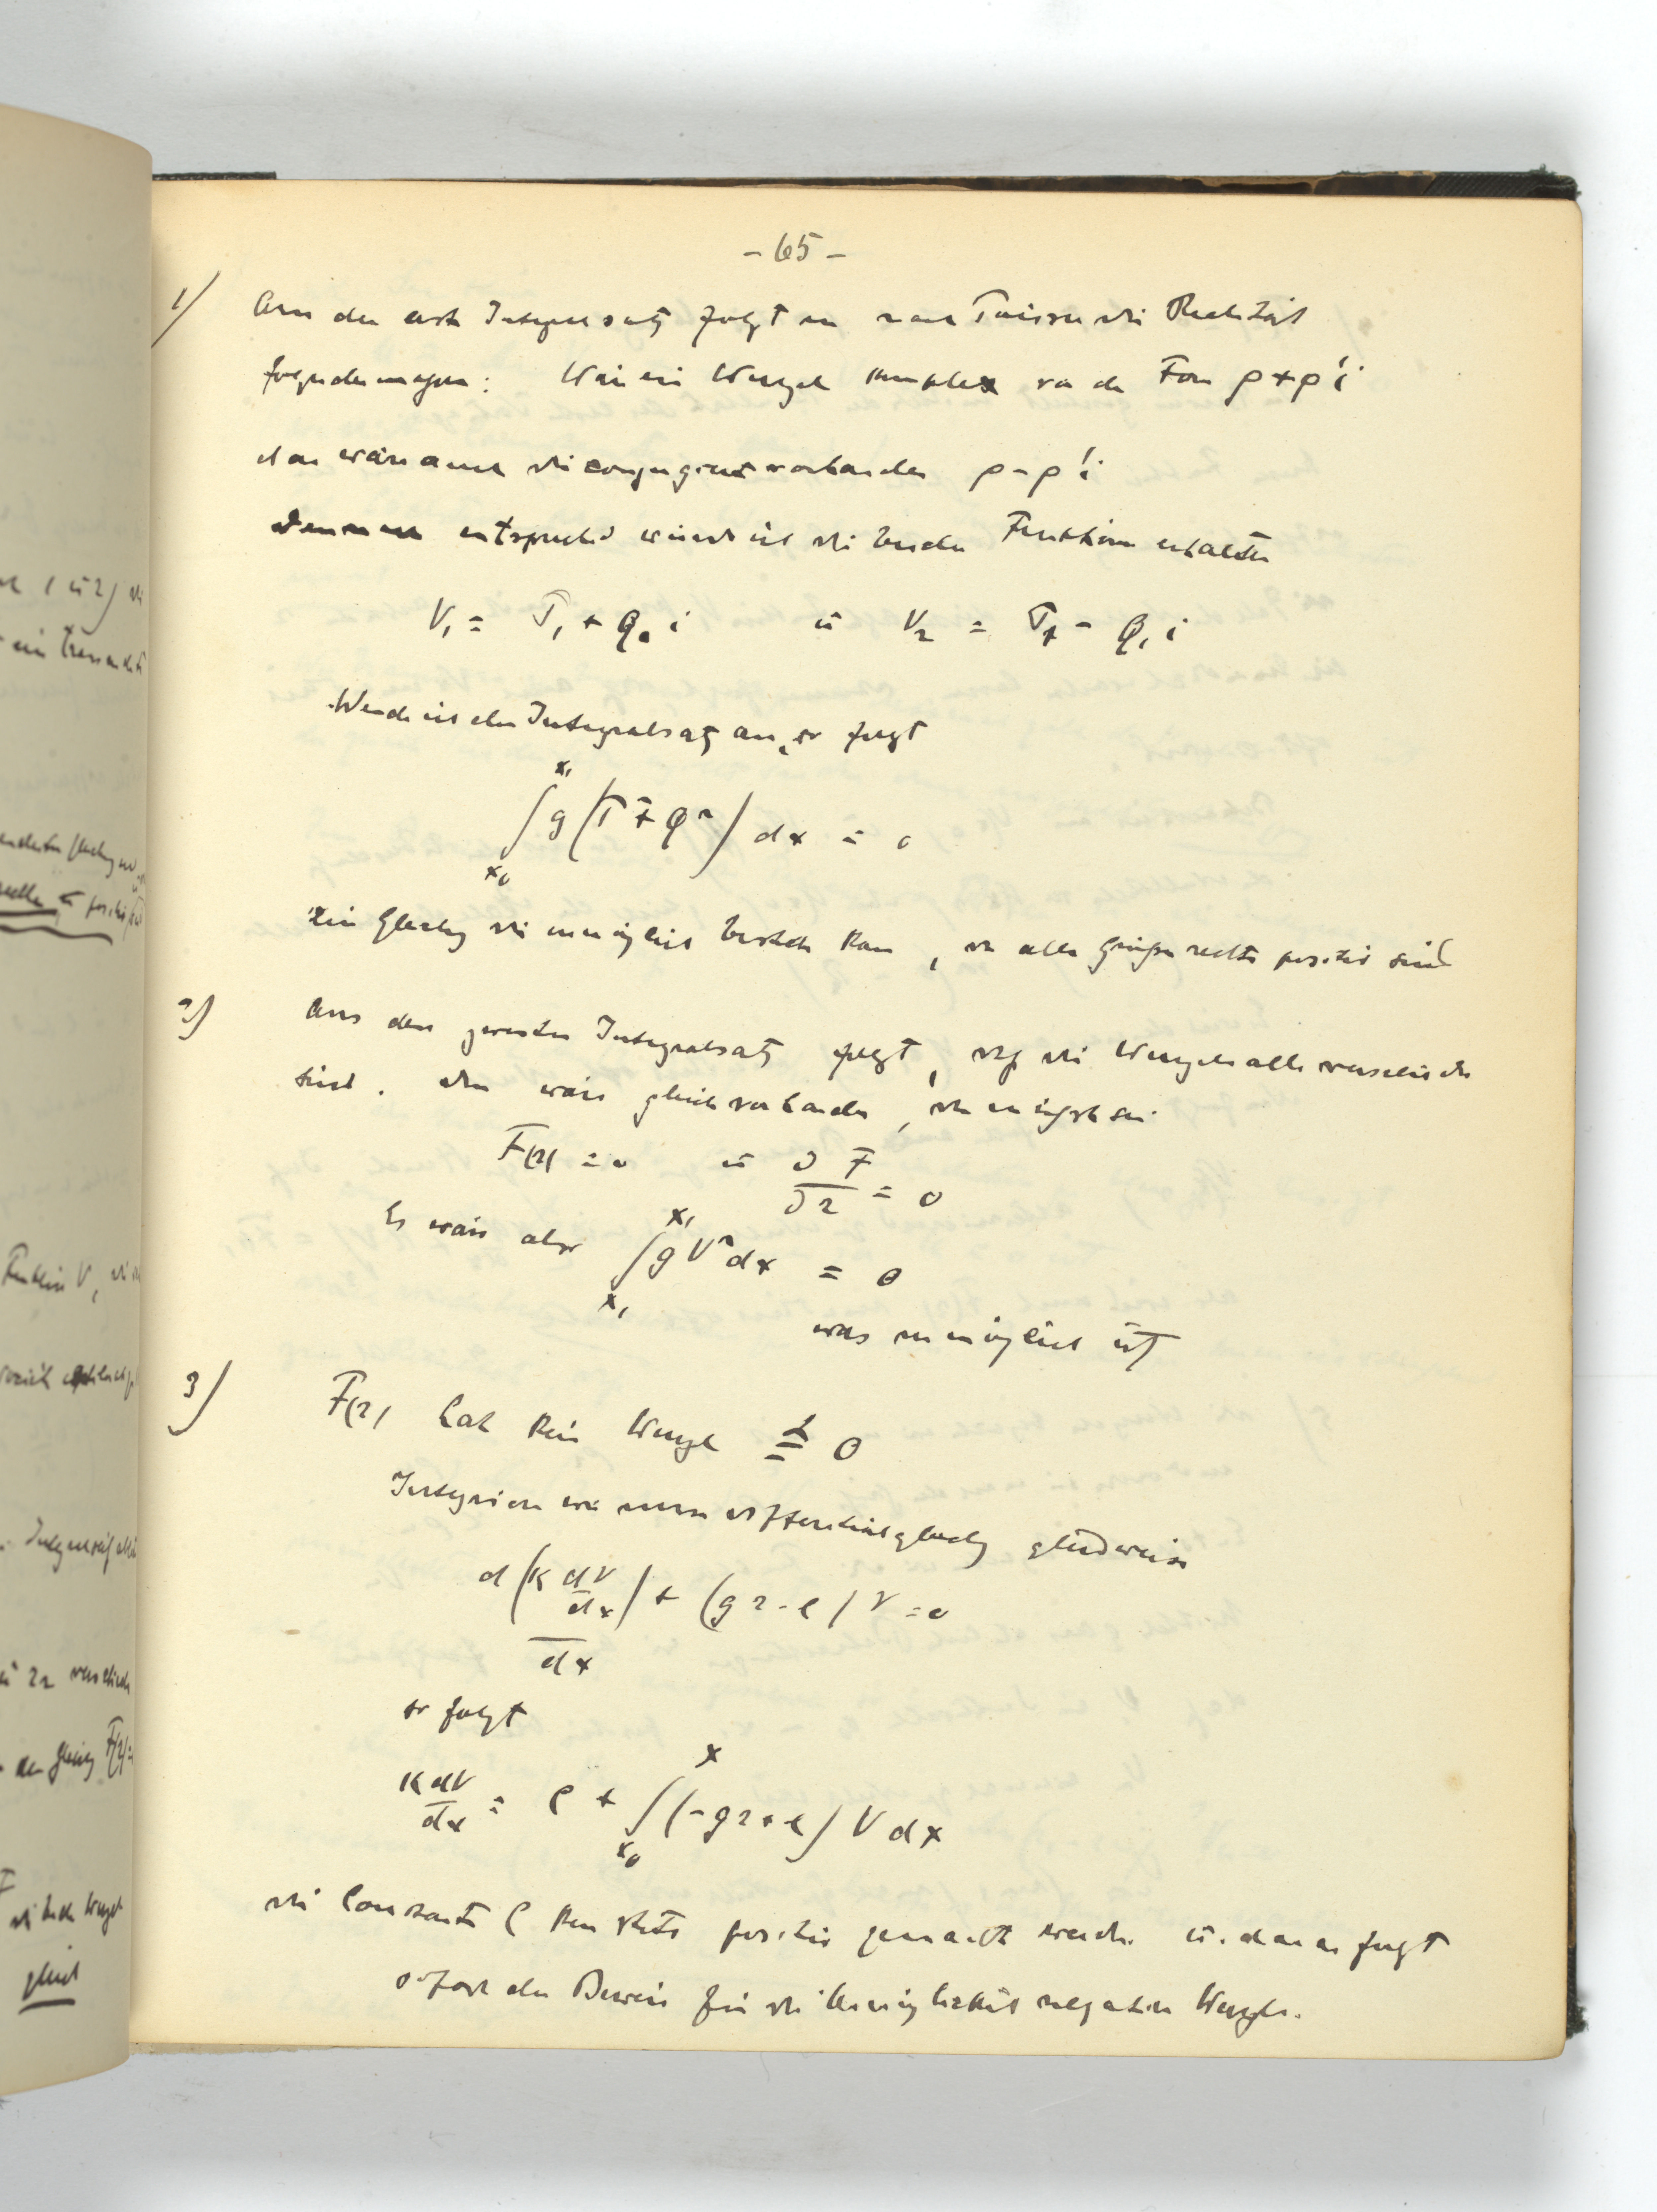 - 65 -
1) Aus den erst Integralsatz folgt nun nach Poisson die Realität
folgendermassen: Wäre ein Wurzel komplex von der Form ρ + ρ'i
dann wäre auch die conjugirte vorhanden ρ - ρ'i
entsprechend würde ich die beiden Funktion erhalten
V₁ = P₁ + Q₁ i u V₂ = P₁ - Q₁ i
Wende ich den Integralsatz an, so folgt
∫ₓ₀^x₁ g (P² + Q²) dx = 0
Ein Gleichg die unmöglich besteh kann, da alle Grössen rechts positiv sind
2) Aus dem zweiten Integralsatz folgt, dass die Wurzeln alle verschieden
sind. Denn wären gleiche vorhanden, so müsste sein
F(r) = 0 u ∂F/∂r = 0
Es wäre also ∫ₓ₁^x₁ g V² dx = 0
was unmöglich ist
3) F(r) hat kein Wurzel ≦ 0
Integrieren wir unsere Differentialgleichg gliedweise
d(K dV/dx)/dx + (g r - l) V = 0
so folgt
K dV/dx = C + ∫ₓ₀^x (-g r + l) V dx
die Constante C kann stets positiv gemacht werden. u. daraus folgt
sofort der Beweis für die Unmöglichkeit negativer Wurzeln.